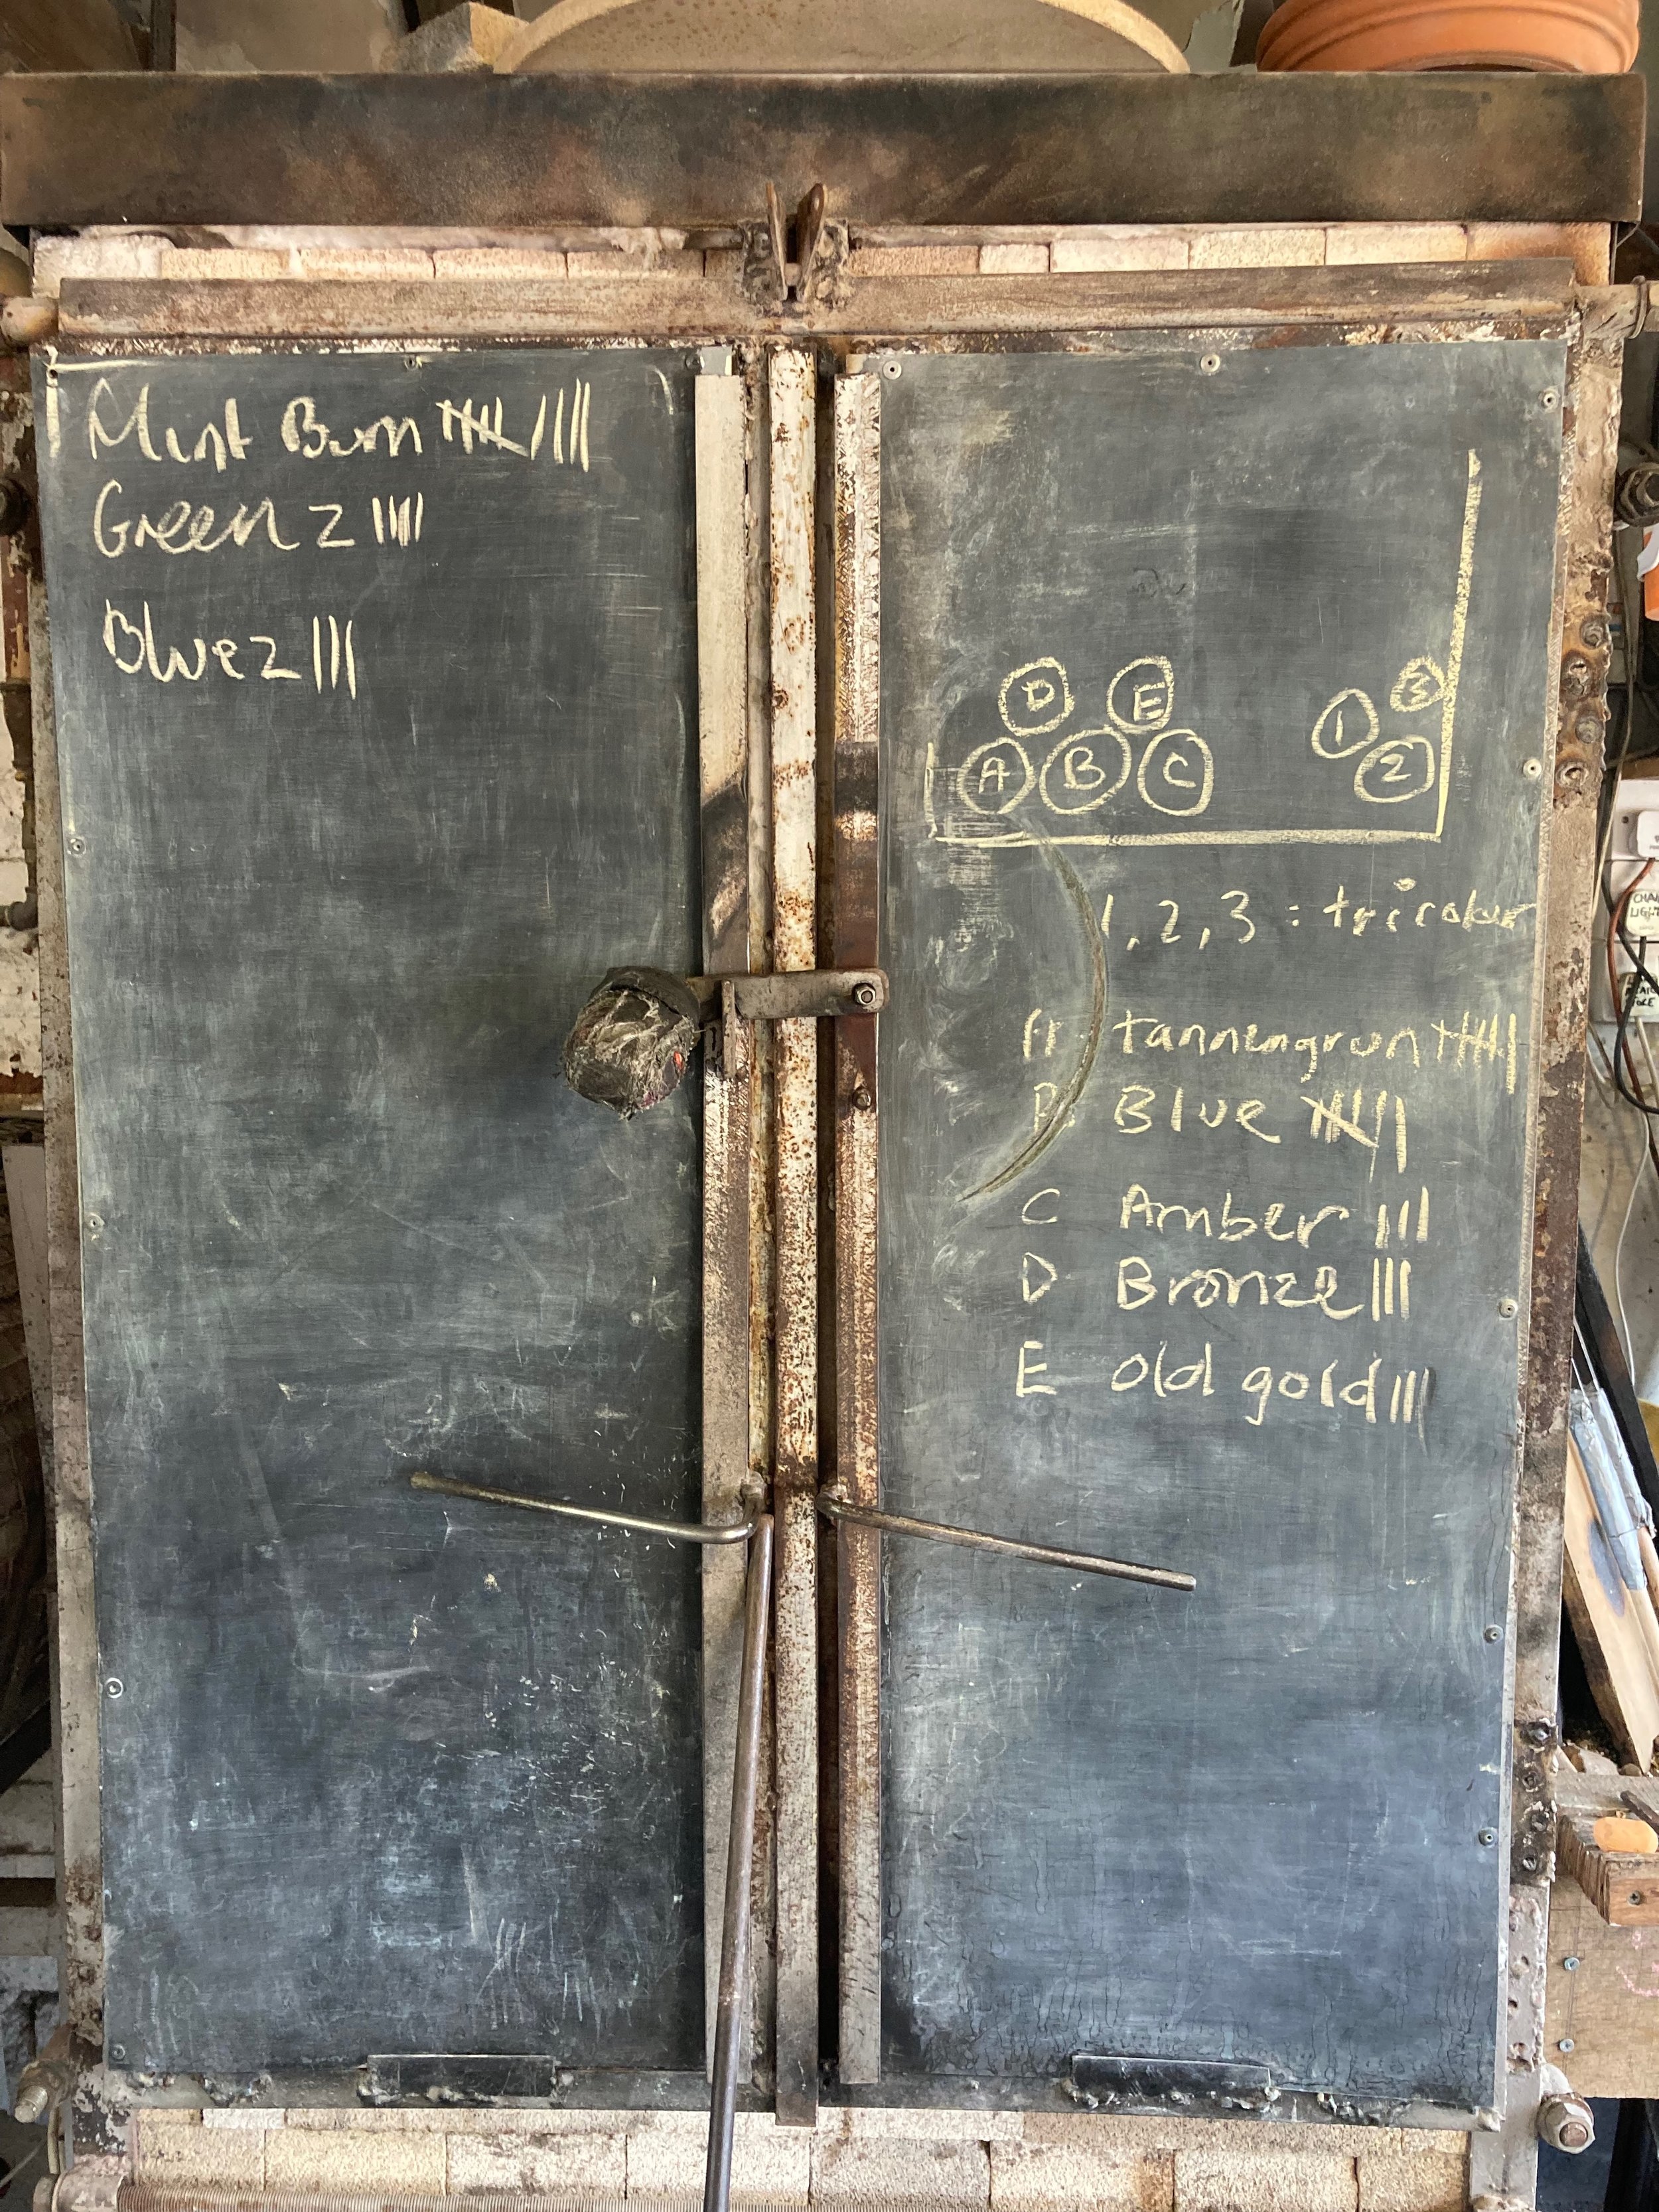 Mint Burn 𝍸 ||||
Green 2 ||||
Blue 2 |||
D E
1 3
A B C
2
1, 2, 3 : tricolour
A tannengrun 𝍸 |
B. Blue 𝍸 ||
C Amber |||
D Bronze |||
E old gold |||